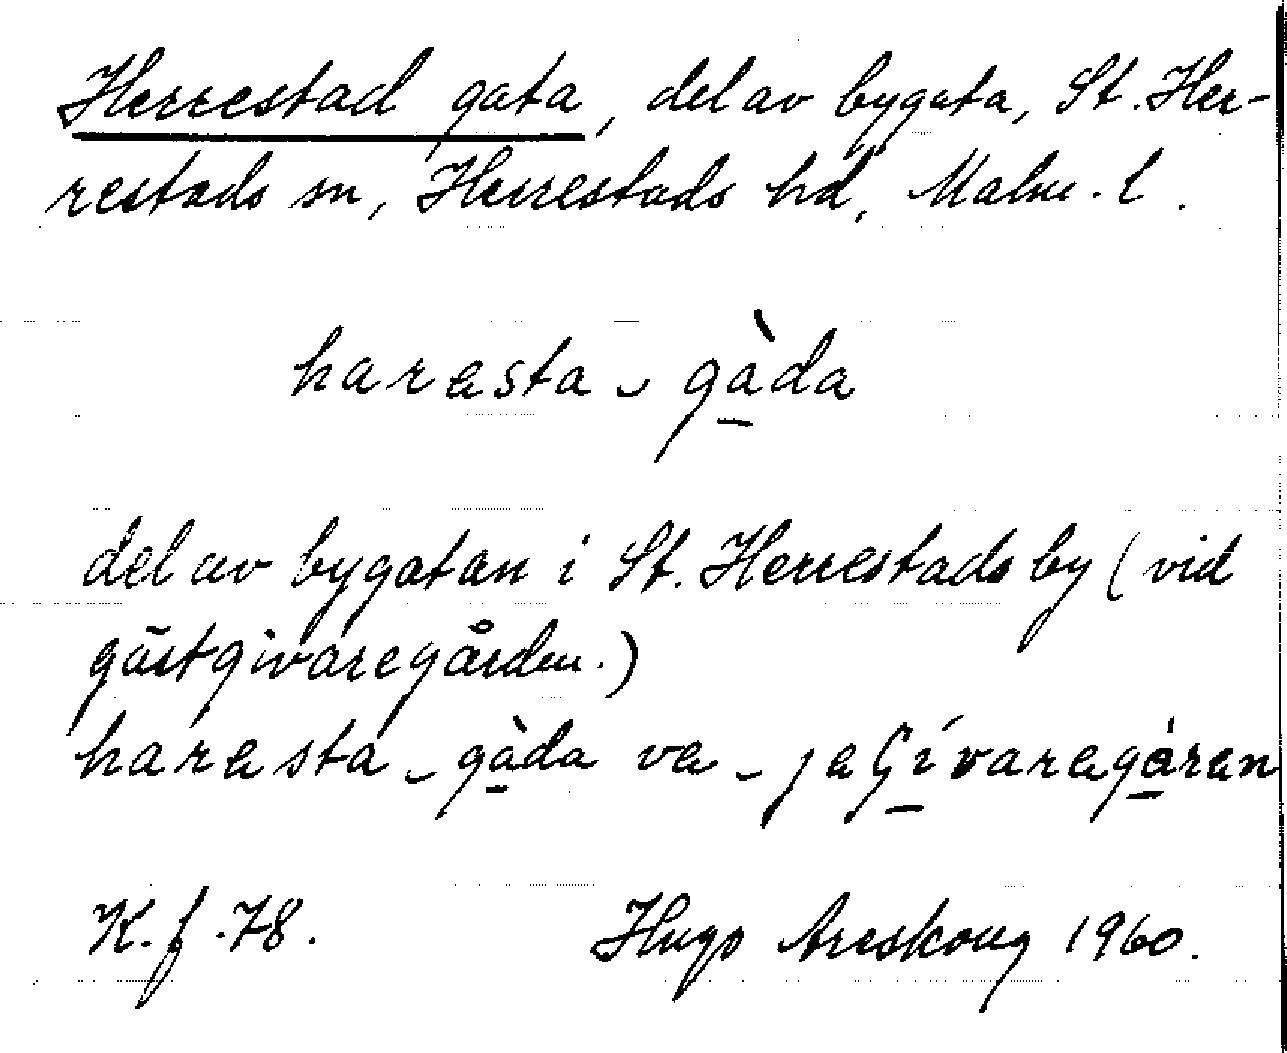 Herrestad gata, del av bygata, St. Her-
restads sn, Herrestads hd, Malm. l.
harasta - gàda
del av bygatan i St. Herrestads by (vid
gästgivaregården.)
harasta - gàda va -
K. f. 78. Hugo Areskoug 1960.